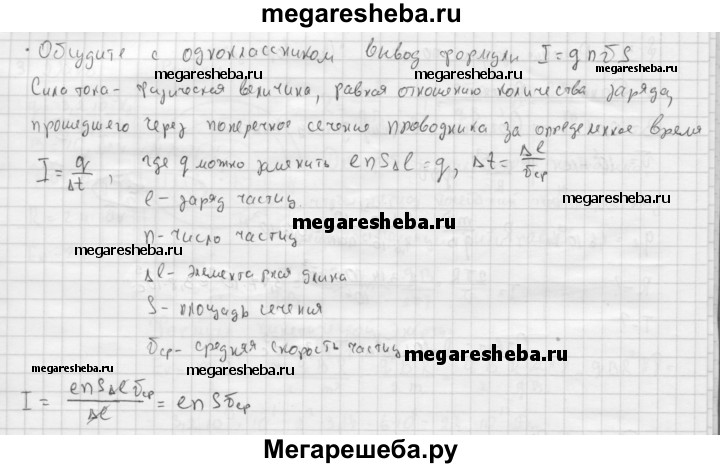 megaresheba.ru
· Обсудите с одноклассником вывод формулы I = qnυS
megaresheba.ru megaresheba.ru
Сила тока - физическая величина, равная отношению количества заряда,
прошедшего через поперечное сечение проводника за определенное время
I = q/Δt, где q можно заменить enSΔl = q, Δt = Δl/υср
megaresheba.ru
e - заряд частиц
megaresheba.ru
n - число частиц
megaresheba.ru
Δl - элементарная длина
megaresheba.ru
S - площадь сечения
υср - средняя скорость частиц
megaresheba.ru
megaresheba.ru
I = enSΔlυср/Δl = enSυср
megaresheba.ru megaresheba.ru
Мегарешеба.ру